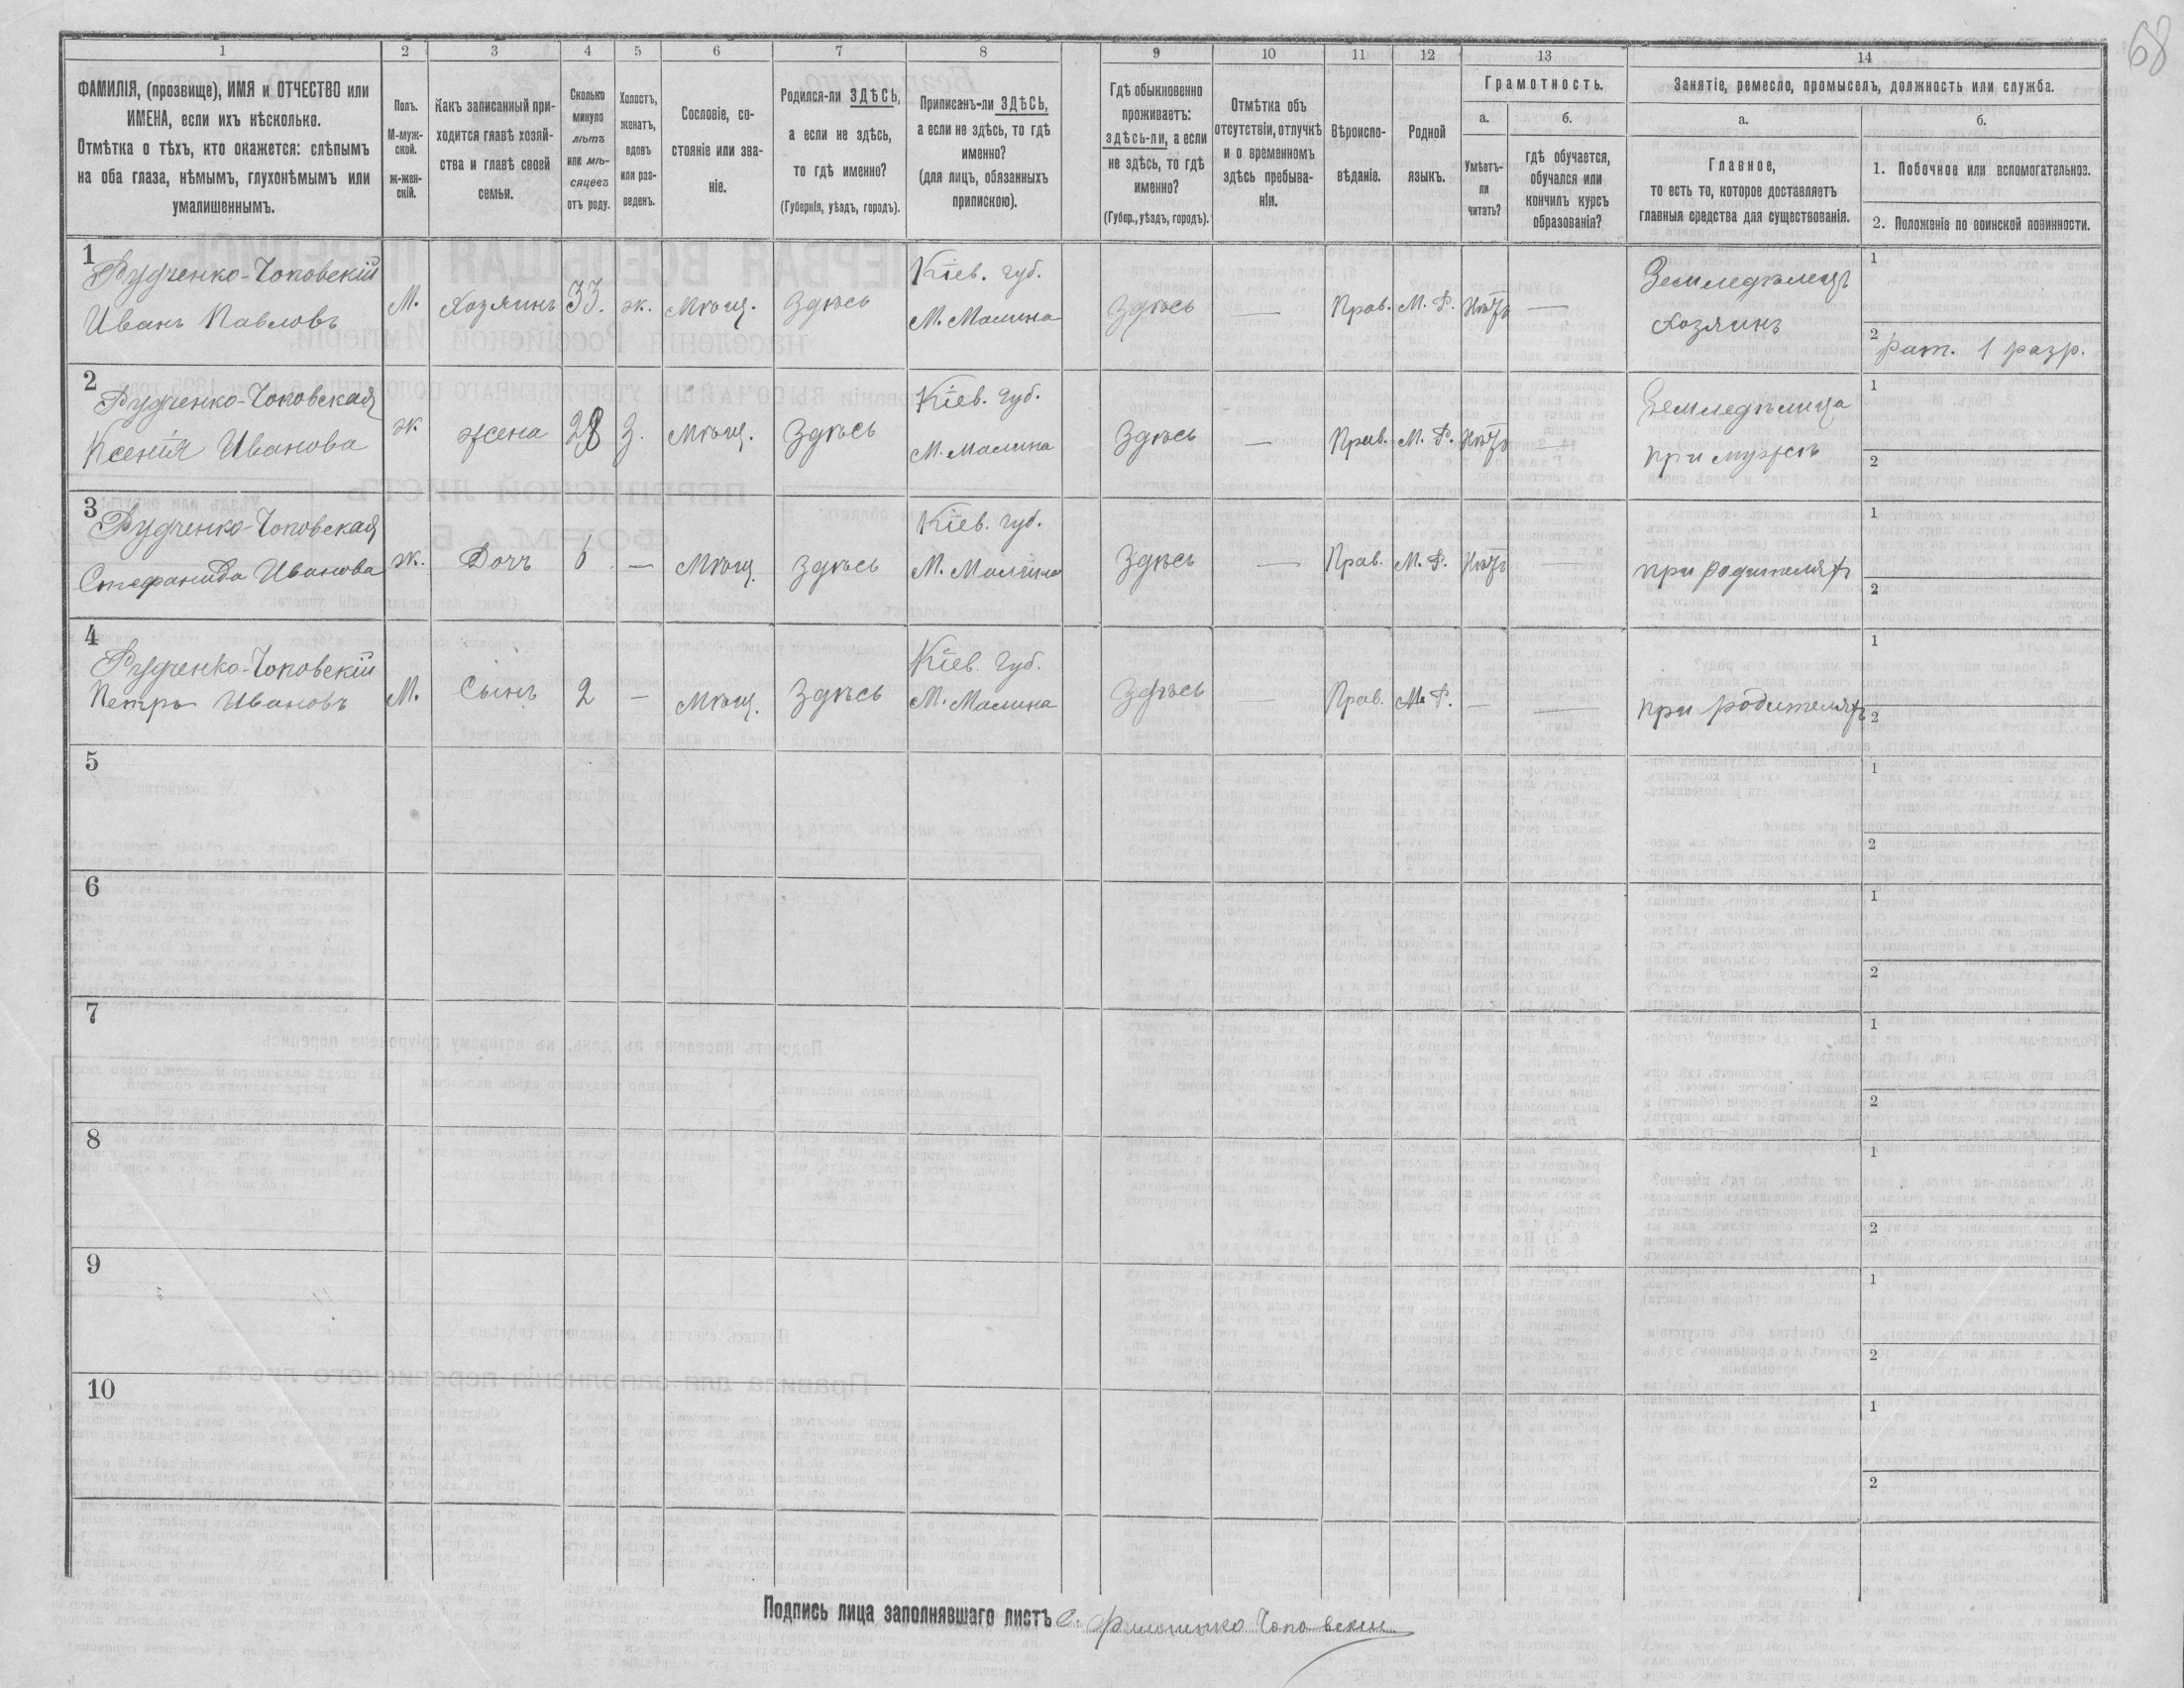 68
1 2 3 4 5 6 7 8 9 10 11 12 13 14
ФАМИЛІЯ, (прозвище), ИМЯ и ОТЧЕСТВО или
ИМЕНА, если ихъ нѣсколько.
Отмѣтка о тѣхъ, кто окажется: слѣпымъ
на оба глаза, нѣмымъ, глухонѣмымъ или
умалишеннымъ.
Полъ.
М-муж-
ской.
ж-жен-
скій.
Какъ записанный при-
ходится главѣ хозяй-
ства и главѣ своей
семьи.
Сколько
минуло
лѣтъ
или мѣ-
сяцевъ
отъ роду.
Холостъ,
женатъ,
вдовъ
или раз-
веденъ.
Сословіе, со-
стояніе или зва-
ніе.
Родился-ли ЗДѢСЬ,
а если не здѣсь,
то гдѣ именно?
(Губернія, уѣздъ, городъ).
Приписанъ-ли ЗДѢСЬ,
а если не здѣсь, то гдѣ
именно?
(для лицъ, обязанныхъ
припискою).
Гдѣ обыкновенно
проживаетъ:
здѣсь-ли, а если
не здѣсь, то гдѣ
именно?
(Губер., уѣздъ, городъ).
Отмѣтка объ
отсутствіи, отлучкѣ
и о временномъ
здѣсь пребыва-
ніи.
Вѣроиспо-
вѣданіе.
Родной
языкъ.
Грамотность.
а.
Умѣетъ-
ли
читать?
б.
гдѣ обучается,
обучался или
кончилъ курсъ
образованія?
Занятіе, ремесло, промыселъ, должность или служба.
а.
Главное,
то есть то, которое доставляетъ
главныя средства для существованія.
б.
1. Побочное или вспомогательное.
2. Положеніе по воинской повинности.
1
Рудченко-Чоповскій
Иванъ Павловъ
М. Хозяинъ 33. ж. Мѣщ. Здѣсь
Кіев. губ.
М. Малина
Здѣсь — Прав. М. Р. Нѣтъ —
Земледѣлецъ
Хозяинъ
1
2 рат. 1 разр.
2
Рудченко-Чоповская
Ксенія Иванова
ж. жена 28 З. Мѣщ. Здѣсь
Кіев. губ.
М. Малина
Здѣсь — Прав. М. Р. Нѣтъ —
Земледѣлица
при мужѣ
1
2
3
Рудченко-Чоповская
Степанида Иванова
ж. Дочь 6 — Мѣщ. Здѣсь
Кіев. губ.
М. Малина
Здѣсь — Прав. М. Р. Нѣтъ —
при родителях
1
2
4
Рудченко-Чоповскій
Петръ Ивановъ
М. Сынъ 2 — Мѣщ. Здѣсь
Кіев. губ.
М. Малина
Здѣсь — Прав. М. Р. — —
при родителяхъ
1
2
5
1
2
6
1
2
7
1
2
8
1
2
9
1
2
10
1
2
Подпись лица заполнявшаго листъ